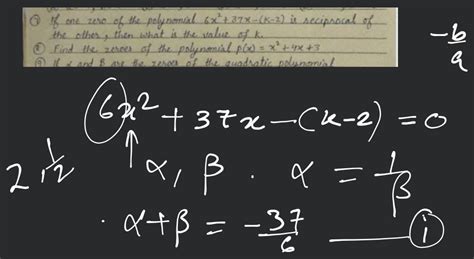 ⑦ If one zero of the polynomial 6x²+37x-(k-2) is reciprocal of
the other, then what is the value of k.
⑧ Find the zeroes of the polynomial p(x) = x²+4x+3
⑨ If α and β are the zeroes of the quadratic polynomial
-b/a
6x² + 37x - (k-2) = 0
2, 1/2
α, β . α = 1/β
. α+β = -37/6 ——— ⓘ